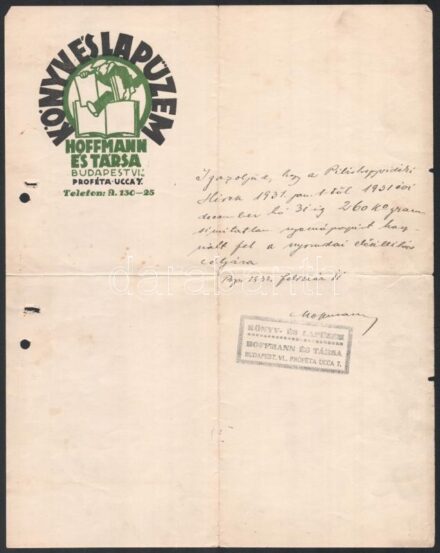 KÖNYV ÉS LAPÜZEM
HOFFMANN
ÉS TÁRSA
BUDAPEST VI.
PRÓFÉTA-UCCA 7.
Telefon: A. 130-25
Igazoljuk, hogy a
Hirek 1931 jan 1 től 1931 évi
december hó 31 ig 260 kgram
simítatlan nyomópapirt hasz
nált fel a nyomdai előállítás
céljára
Bpest 1932. február 11
Hoffmann
KÖNYV- ÉS LAPÜZEM
HOFFMANN ÉS TÁRSA
BUDAPEST, VI., PRÓFÉTA UCCA 7.
darabanth